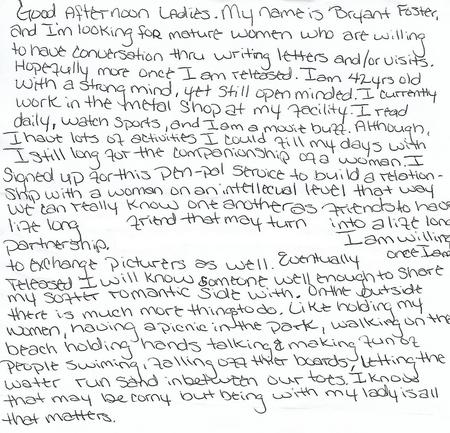 Good Afternoon Ladies. My name is Bryant Foster,
and I'm looking for mature women who are willing
to have conversation thru writing letters and/or visits.
Hopefully more once I am released. I am 42 yrs old
with a strong mind, yet still open minded. I currently
work in the metal shop at my facility. I read
daily, watch sports, and I am a movie buff. Although,
I have lots of activities I could fill my days with
I still long for the companionship of a woman. I
signed up for this pen-pal service to build a relation-
ship with a woman on an intellecual level that way
we can really know one another as friends to have
life long friend that may turn into a life long
partnership. I am willing
to exchange picturers as well. Eventually once I am
released I will know someone well enough to share
my softer romantic side with. On the outside
there is much more things to do. Like holding my
women, having a picnic in the park, walking on the
beach holding hands talking & making fun of
people swiming, falling off thier boards, letting the
water run sand inbetween our toes. I know
that may be corny but being with my lady is all
that matters.